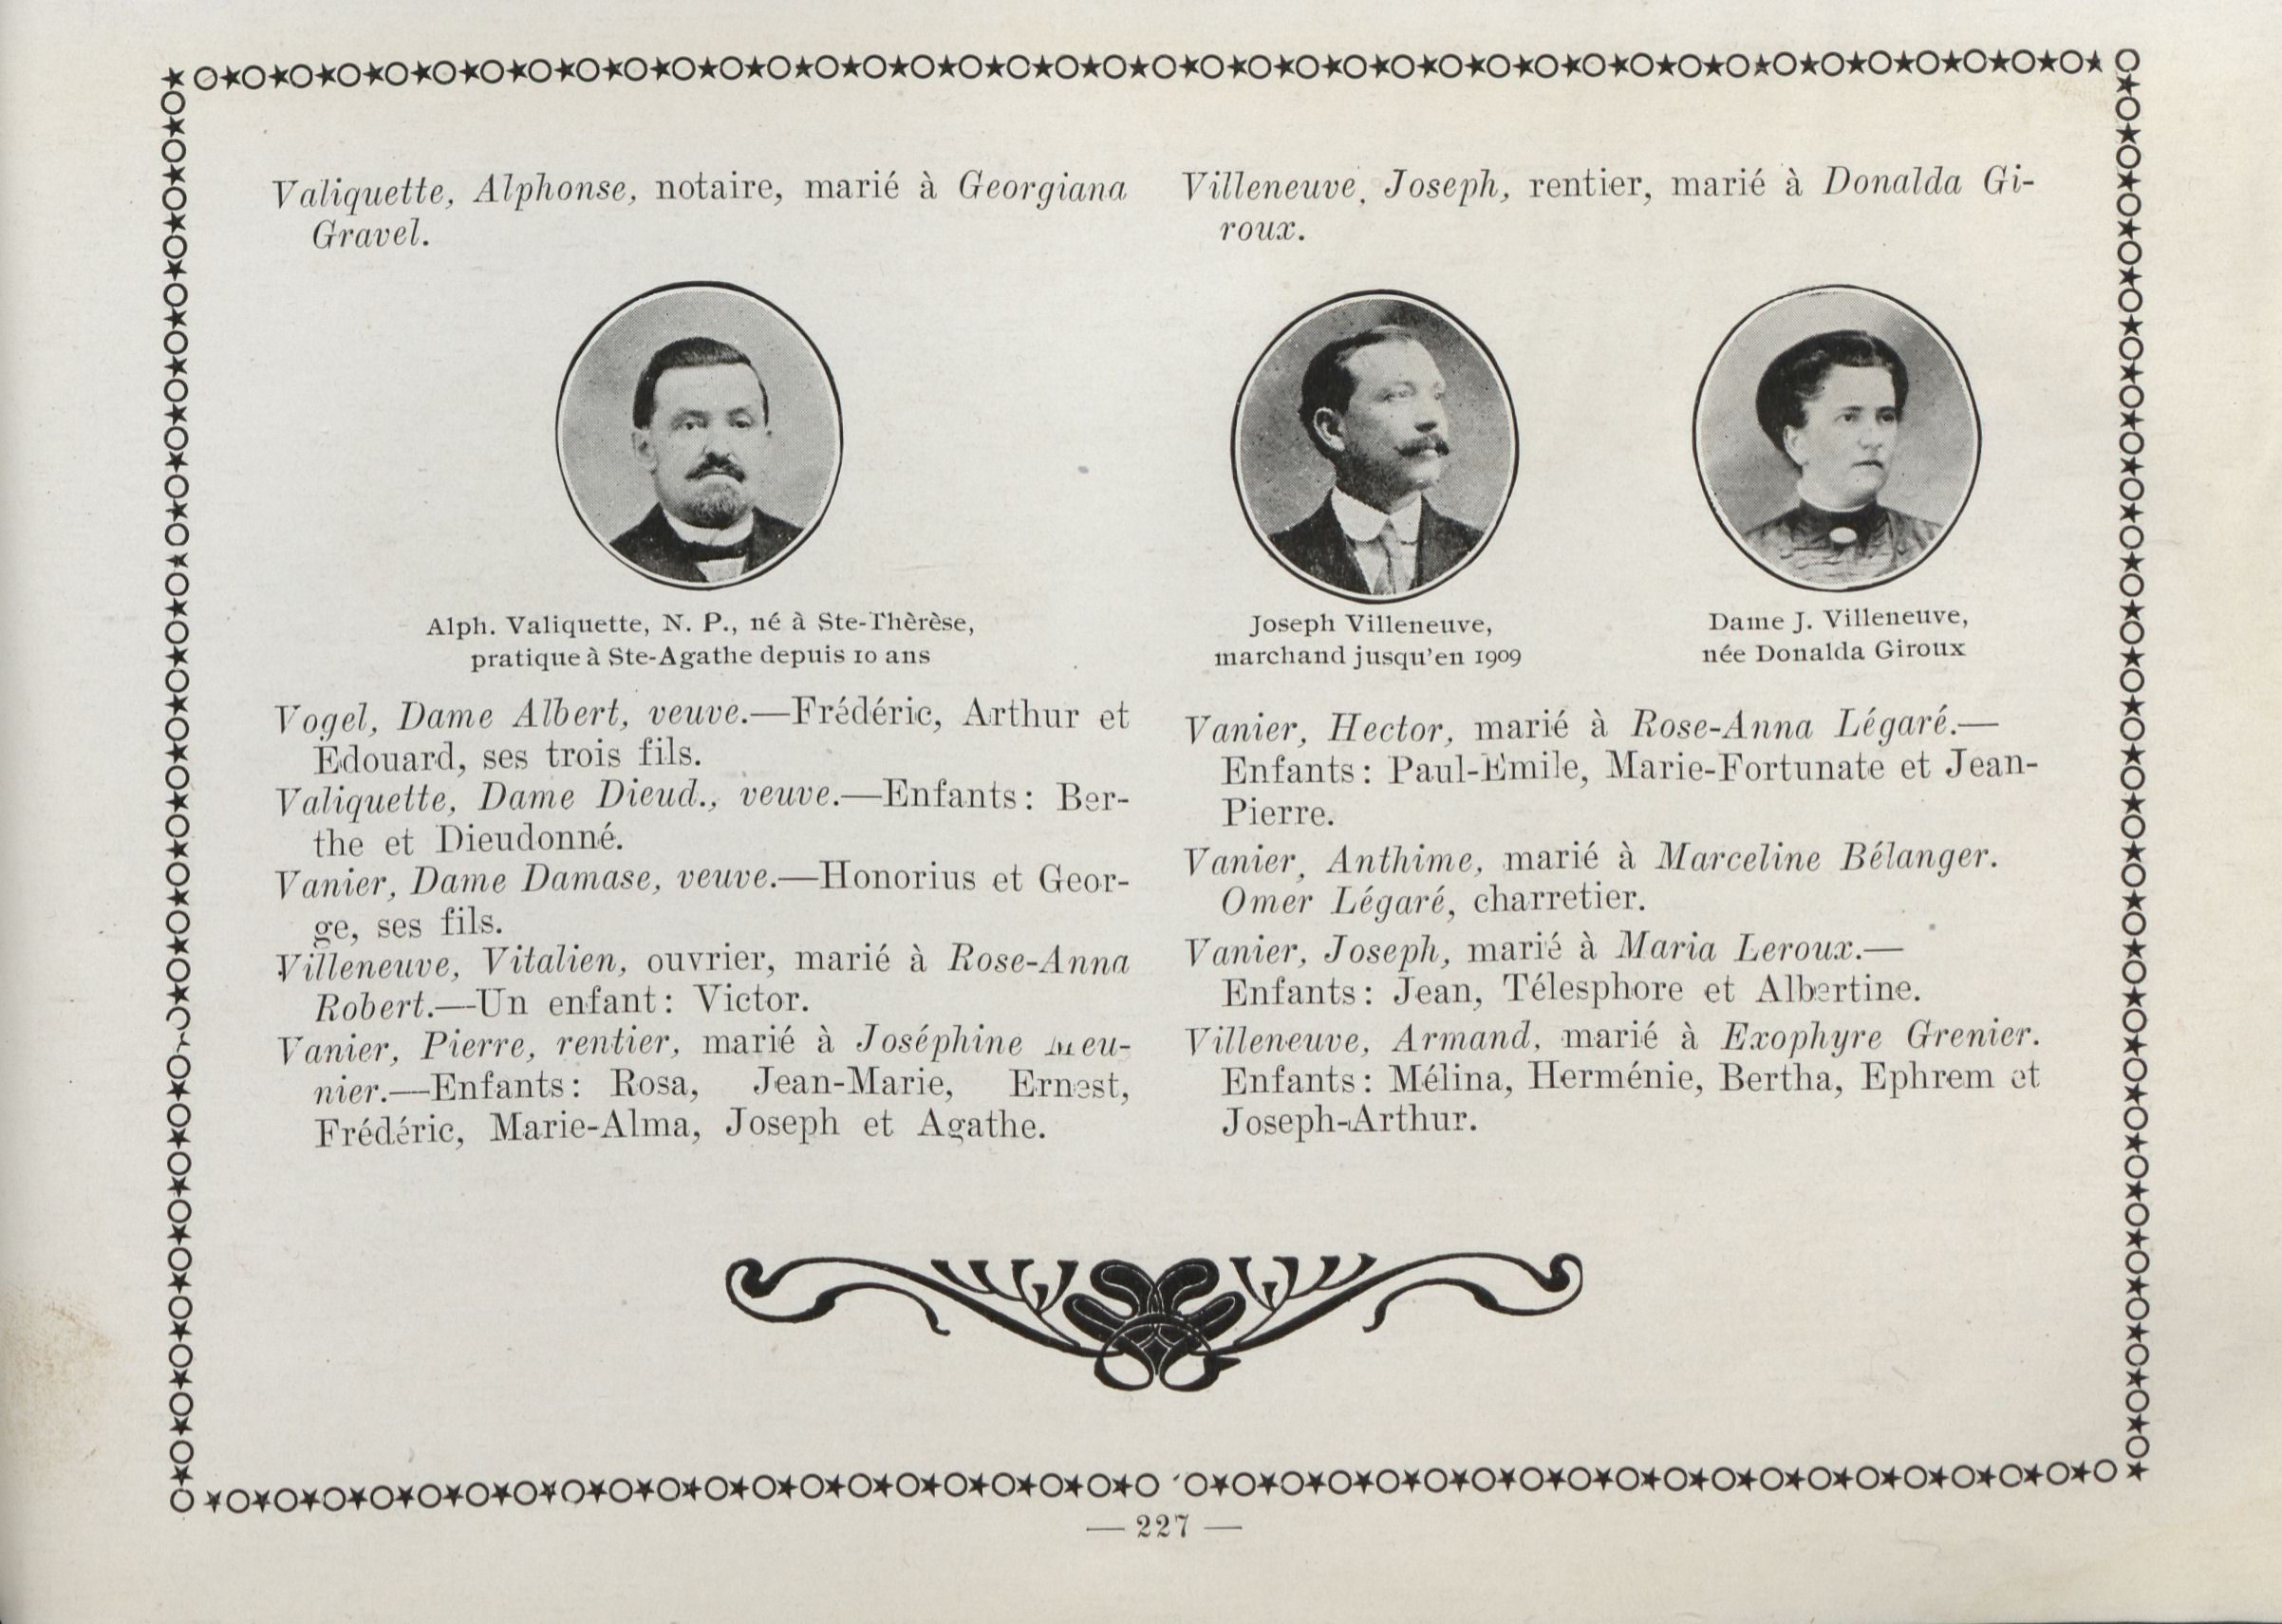 Valiquette, Alphonse, notaire, marié à Georgiana
Gravel.
Alph. Valiquette, N. P., né à Ste-Thèrèse,
pratique à Ste-Agathe depuis 10 ans
Vogel, Dame Albert, veuve.—Frédéric, Arthur et
Edouard, ses trois fils.
Valiquette, Dame Dieud., veuve.—Enfants: Ber-
the et Dieudonné.
Vanier, Dame Damase, veuve.—Honorius et Geor-
ge, ses fils.
Villeneuve, Vitalien, ouvrier, marié à Rose-Anna
Robert.—Un enfant: Victor.
Vanier, Pierre, rentier, marié à Joséphine Meu-
nier.—Enfants: Rosa, Jean-Marie, Ernest,
Frédéric, Marie-Alma, Joseph et Agathe.
Villeneuve, Joseph, rentier, marié à Donalda Gi-
roux.
Joseph Villeneuve,
marchand jusqu'en 1909
Dame J. Villeneuve,
née Donalda Giroux
Vanier, Hector, marié à Rose-Anna Légaré.—
Enfants: Paul-Emile, Marie-Fortunate et Jean-
Pierre.
Vanier, Anthime, marié à Marceline Bélanger.
Omer Légaré, charretier.
Vanier, Joseph, marié à Maria Leroux.—
Enfants: Jean, Télesphore et Albertine.
Villeneuve, Armand, marié à Exophyre Grenier.
Enfants: Mélina, Herménie, Bertha, Ephrem et
Joseph-Arthur.
— 227 —